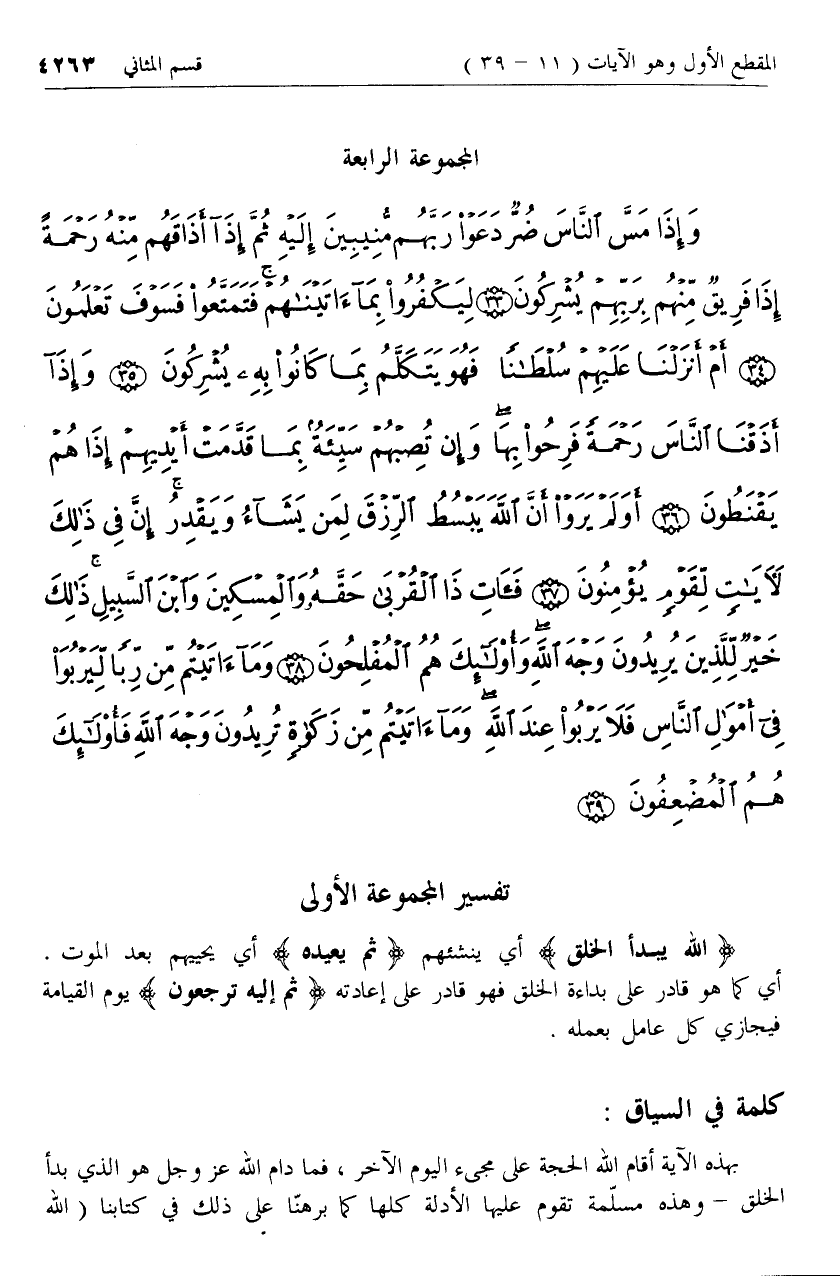 المقطع الأول وهو الآيات ( ١١ - ٣٩ ) قسم المثاني ٤٢٦٣
المجموعة الرابعة
وَإِذَا مَسَّ ٱلنَّاسَ ضُرٌّ دَعَوْا۟ رَبَّهُم مُّنِيبِينَ إِلَيْهِ ثُمَّ إِذَآ أَذَاقَهُم مِّنْهُ رَحْمَةً
إِذَا فَرِيقٌ مِّنْهُم بِرَبِّهِمْ يُشْرِكُونَ ٣٣ لِيَكْفُرُوا۟ بِمَآ ءَاتَيْنَـٰهُمْ ۚ فَتَمَتَّعُوا۟ فَسَوْفَ تَعْلَمُونَ
٣٤ أَمْ أَنزَلْنَا عَلَيْهِمْ سُلْطَـٰنًا فَهُوَ يَتَكَلَّمُ بِمَا كَانُوا۟ بِهِۦ يُشْرِكُونَ ٣٥ وَإِذَآ
أَذَقْنَا ٱلنَّاسَ رَحْمَةً فَرِحُوا۟ بِهَا ۖ وَإِن تُصِبْهُمْ سَيِّئَةٌۢ بِمَا قَدَّمَتْ أَيْدِيهِمْ إِذَا هُمْ
يَقْنَطُونَ ٣٦ أَوَلَمْ يَرَوْا۟ أَنَّ ٱللَّهَ يَبْسُطُ ٱلرِّزْقَ لِمَن يَشَآءُ وَيَقْدِرُ ۚ إِنَّ فِى ذَٰلِكَ
لَـَٔايَـٰتٍ لِّقَوْمٍ يُؤْمِنُونَ ٣٧ فَـَٔاتِ ذَا ٱلْقُرْبَىٰ حَقَّهُۥ وَٱلْمِسْكِينَ وَٱبْنَ ٱلسَّبِيلِ ۚ ذَٰلِكَ
خَيْرٌ لِّلَّذِينَ يُرِيدُونَ وَجْهَ ٱللَّهِ ۖ وَأُو۟لَـٰٓئِكَ هُمُ ٱلْمُفْلِحُونَ ٣٨ وَمَآ ءَاتَيْتُم مِّن رِّبًا لِّيَرْبُوَا۟
فِىٓ أَمْوَٰلِ ٱلنَّاسِ فَلَا يَرْبُوا۟ عِندَ ٱللَّهِ ۖ وَمَآ ءَاتَيْتُم مِّن زَكَوٰةٍ تُرِيدُونَ وَجْهَ ٱللَّهِ فَأُو۟لَـٰٓئِكَ
هُمُ ٱلْمُضْعِفُونَ ٣٩
تفسير المجموعة الأولى
﴿ الله يبدأ الخلق ﴾ أي ينشئهم ﴿ ثم يعيده ﴾ أي يحييهم بعد الموت .
أي كما هو قادر على بداءة الخلق فهو قادر على إعادته ﴿ ثم إليه ترجعون ﴾ يوم القيامة
فيجازي كل عامل بعمله .
كلمة في السياق :
بهذه الآية أقام الله الحجة على مجيء اليوم الآخر ، فما دام الله عز وجل هو الذي بدأ
الخلق – وهذه مسلّمة تقوم عليها الأدلة كلها كما برهنّا على ذلك في كتابنا ( الله